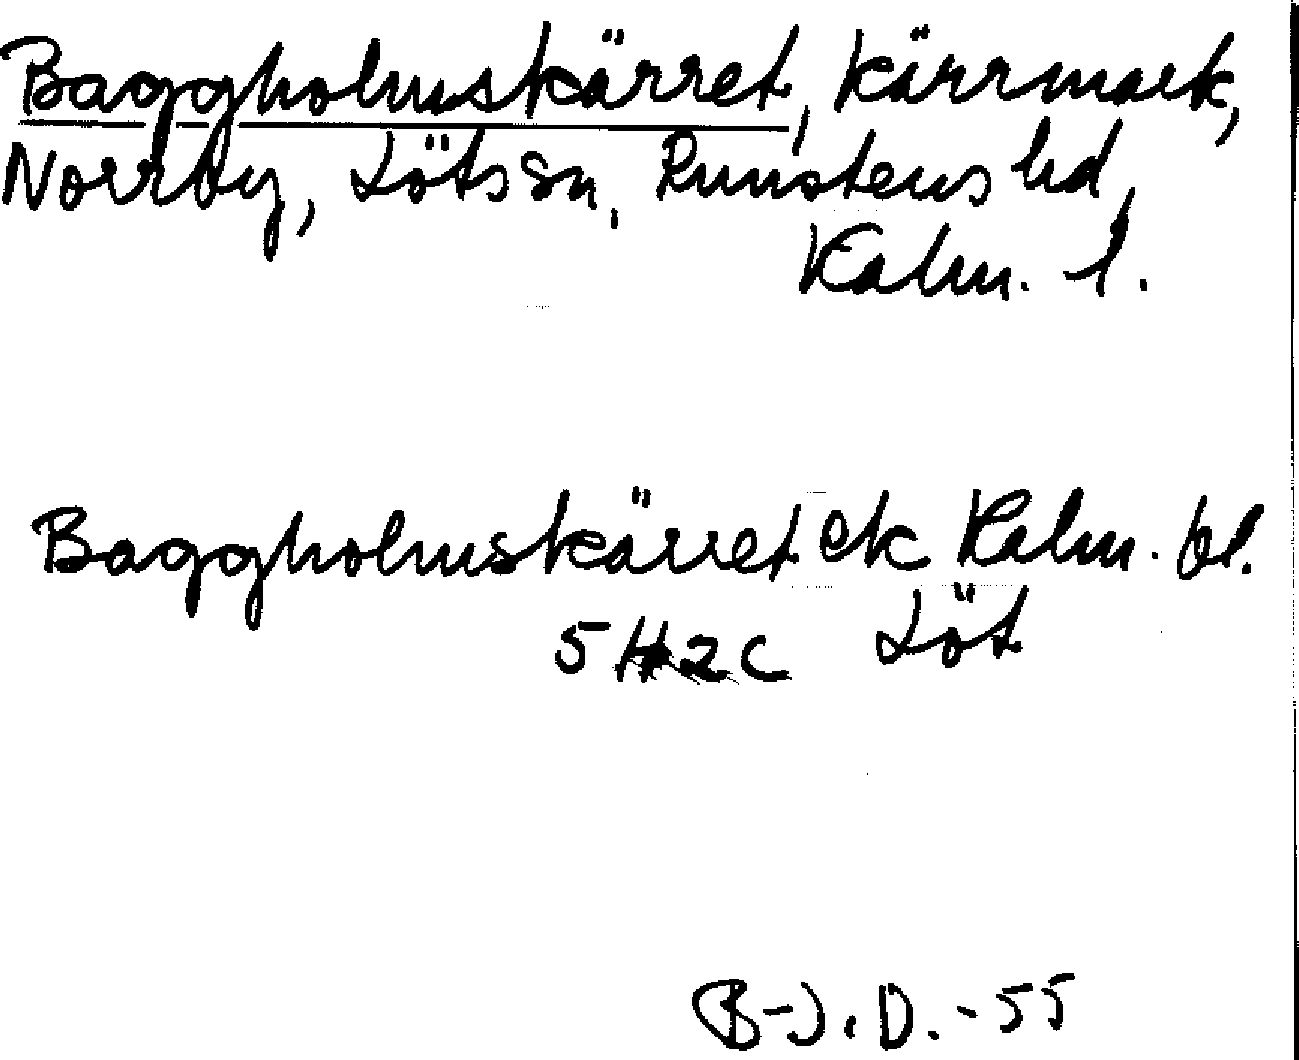 Baggholmskärret, kärrmark,
Norrby, Löts sn, Runstens hd,
Kalm. l.
Baggholmskärret ek Kalm. bl.
5H2c Löt
B-J. D. -55